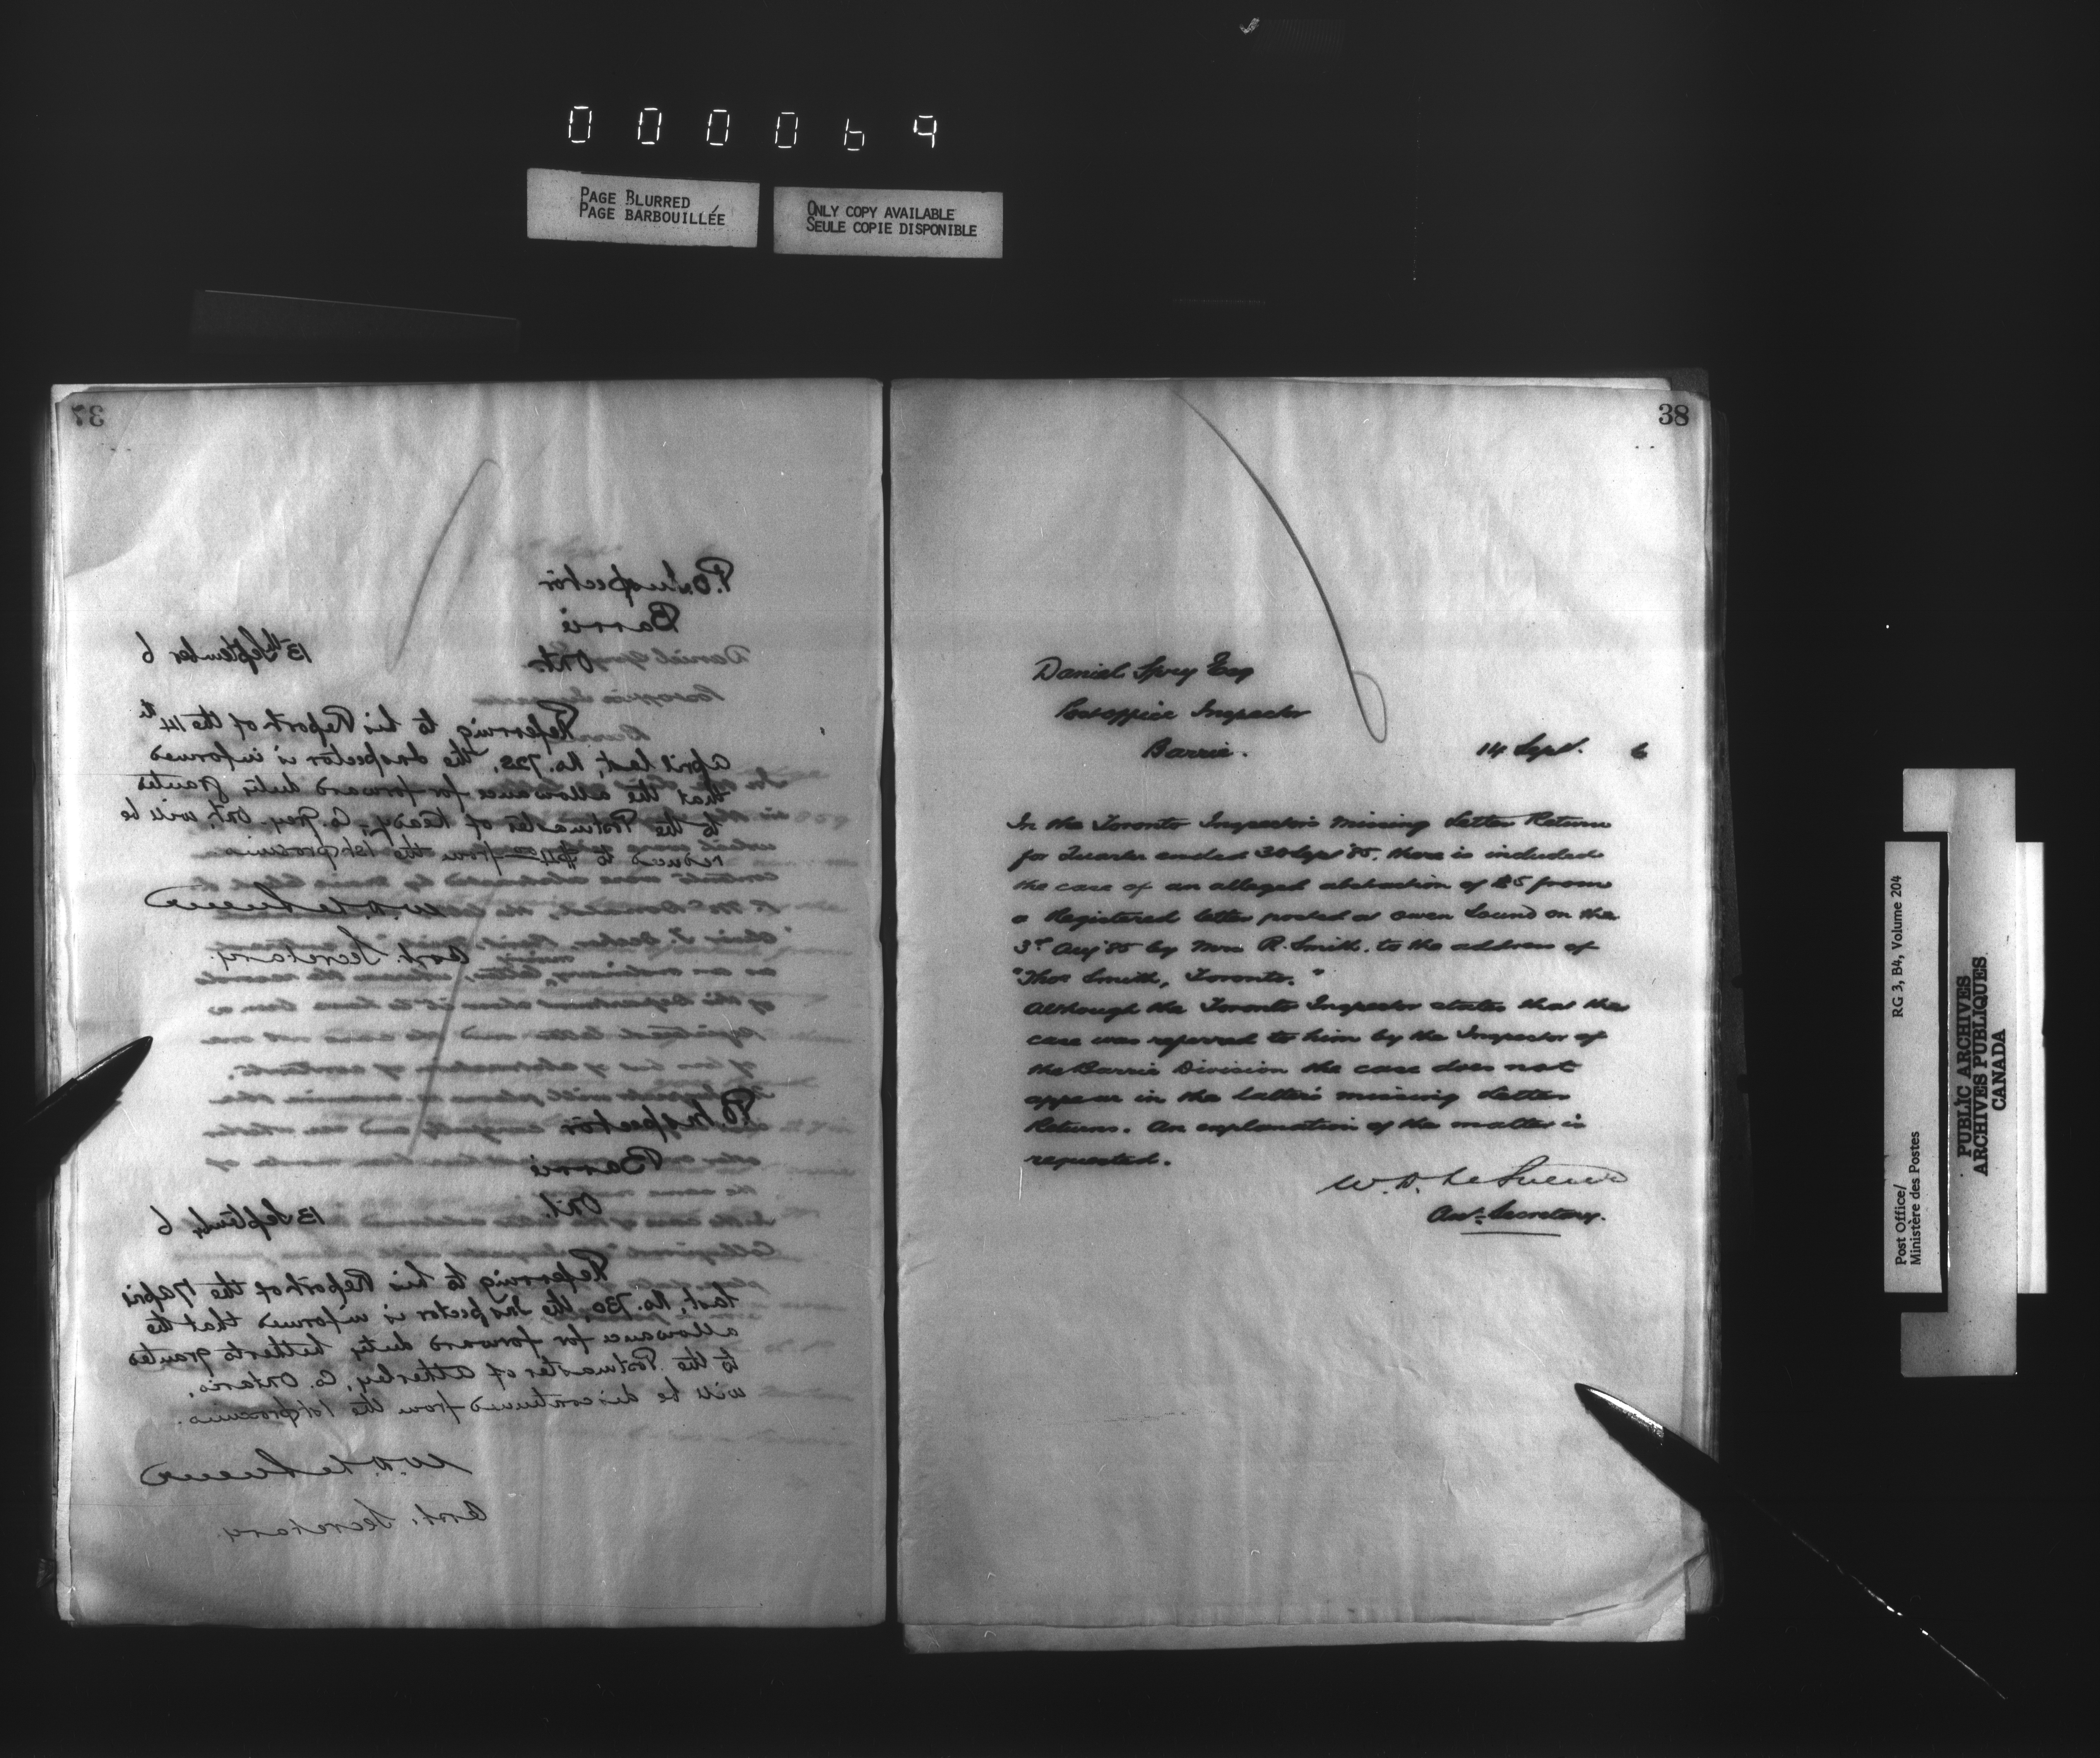 000069
PAGE BLURRED
PAGE BARBOUILLÉE
ONLY COPY AVAILABLE
SEULE COPIE DISPONIBLE
37
P.O. Inspector
Barrie
Ont.
13th September 6
Referring to his Report of the 14th
April last, No. 728, the Inspector is informed
that the allowance for forward duty granted
to the Postmaster of Keady, Co. Grey, Ont, will be
reduced to $4 from the 1st proximo
W.D. LeSueur
Asst. Secretary.
P.O. Inspector
Barrie
Ont.
13 September 6
Referring to his Report of the 17 April
last, No. 730, the Inspector is informed that the
allowance for forward duty hitherto granted
to the Postmaster of Atherley, Co. Ontario,
will be discontinued from the 1st proximo.
W.D. LeSueur
Asst. Secretary.
38
Daniel Spry Esq
Postoffice Inspector
Barrie.
14 Sept. 6
In the Toronto Inspector's Missing Letter Return
for Quarter ended 30 Sept '85, there is included
the case of an alleged abstraction of $5 from
a Registered letter posted at Owen Sound on the
3rd Aug '85 by Mrs R. Smith, to the address of
"Thos Smith, Toronto."
Although the Toronto Inspector states that the
case was referred to him by the Inspector of
the Barrie Division the case does not
appear in the latter's missing Letter
Returns. An explanation of the matter is
requested.
W.D. LeSueur
Asst. Secretary.
Post Office/
Ministère des Postes
RG 3, B4, Volume 204
PUBLIC ARCHIVES
ARCHIVES PUBLIQUES
CANADA